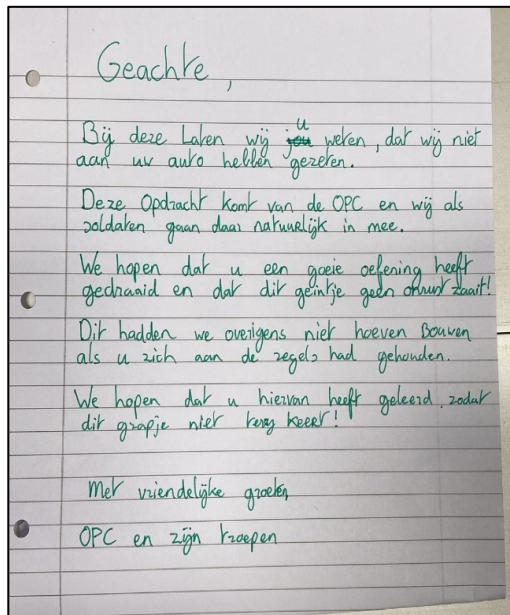 Geachte,
u
Bij deze Laten wij jou weten, dat wij niet
aan uw auto hebben gezeten.
Deze Opdracht komt van de OPC en wij als
soldaten gaan daar natuurlijk in mee.
We hopen dat u een goeie oefening heeft
gedraaid en dat dit geintje geen onrust zaait!
Dit hadden we overigens niet hoeven Bouwen
als u zich aan de regels had gehouden.
We hopen dat u hiervan heeft geleerd, zodat
dit grapje niet terug keert!
Met vriendelijke groeten,
OPC en zijn troepen